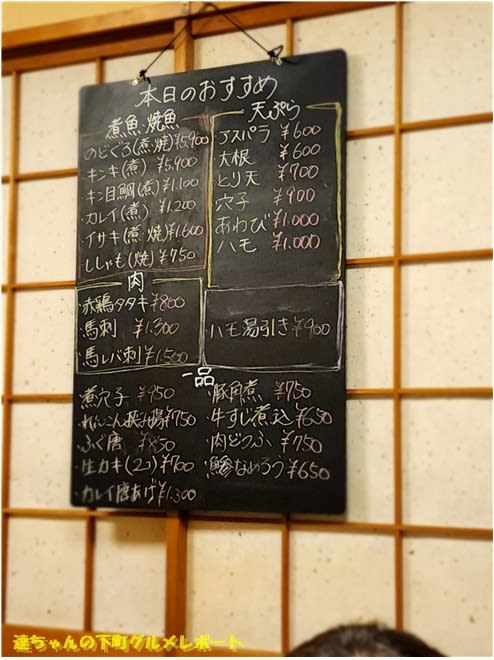 本日のおすすめ
煮魚・焼魚
のどぐろ(煮・焼)¥5,900
キンキ(煮) ¥5,900
キン目鯛(煮)¥1,100
カレイ(煮) ¥1,200
イサキ(煮・焼)¥1,600
ししゃも(焼)¥750
天ぷら
アスパラ ¥600
大根 ¥600
とり天 ¥700
穴子 ¥900
あわび ¥1,000
ハモ ¥1,000
肉
・赤鶏タタキ¥800
・馬刺 ¥1,300
・馬レバ刺¥1,500
・ハモ湯引き¥900
一品
煮穴子 ¥950
れんこん挟み揚¥750
・ふぐ唐 ¥850
・生カキ(2コ)¥700
・カレイ唐あげ¥1,300
・豚角煮 ¥750
・牛すじ煮込¥650
・肉どうふ ¥750
・鯵なめろう¥650
達ちゃんの下町グルメレポート